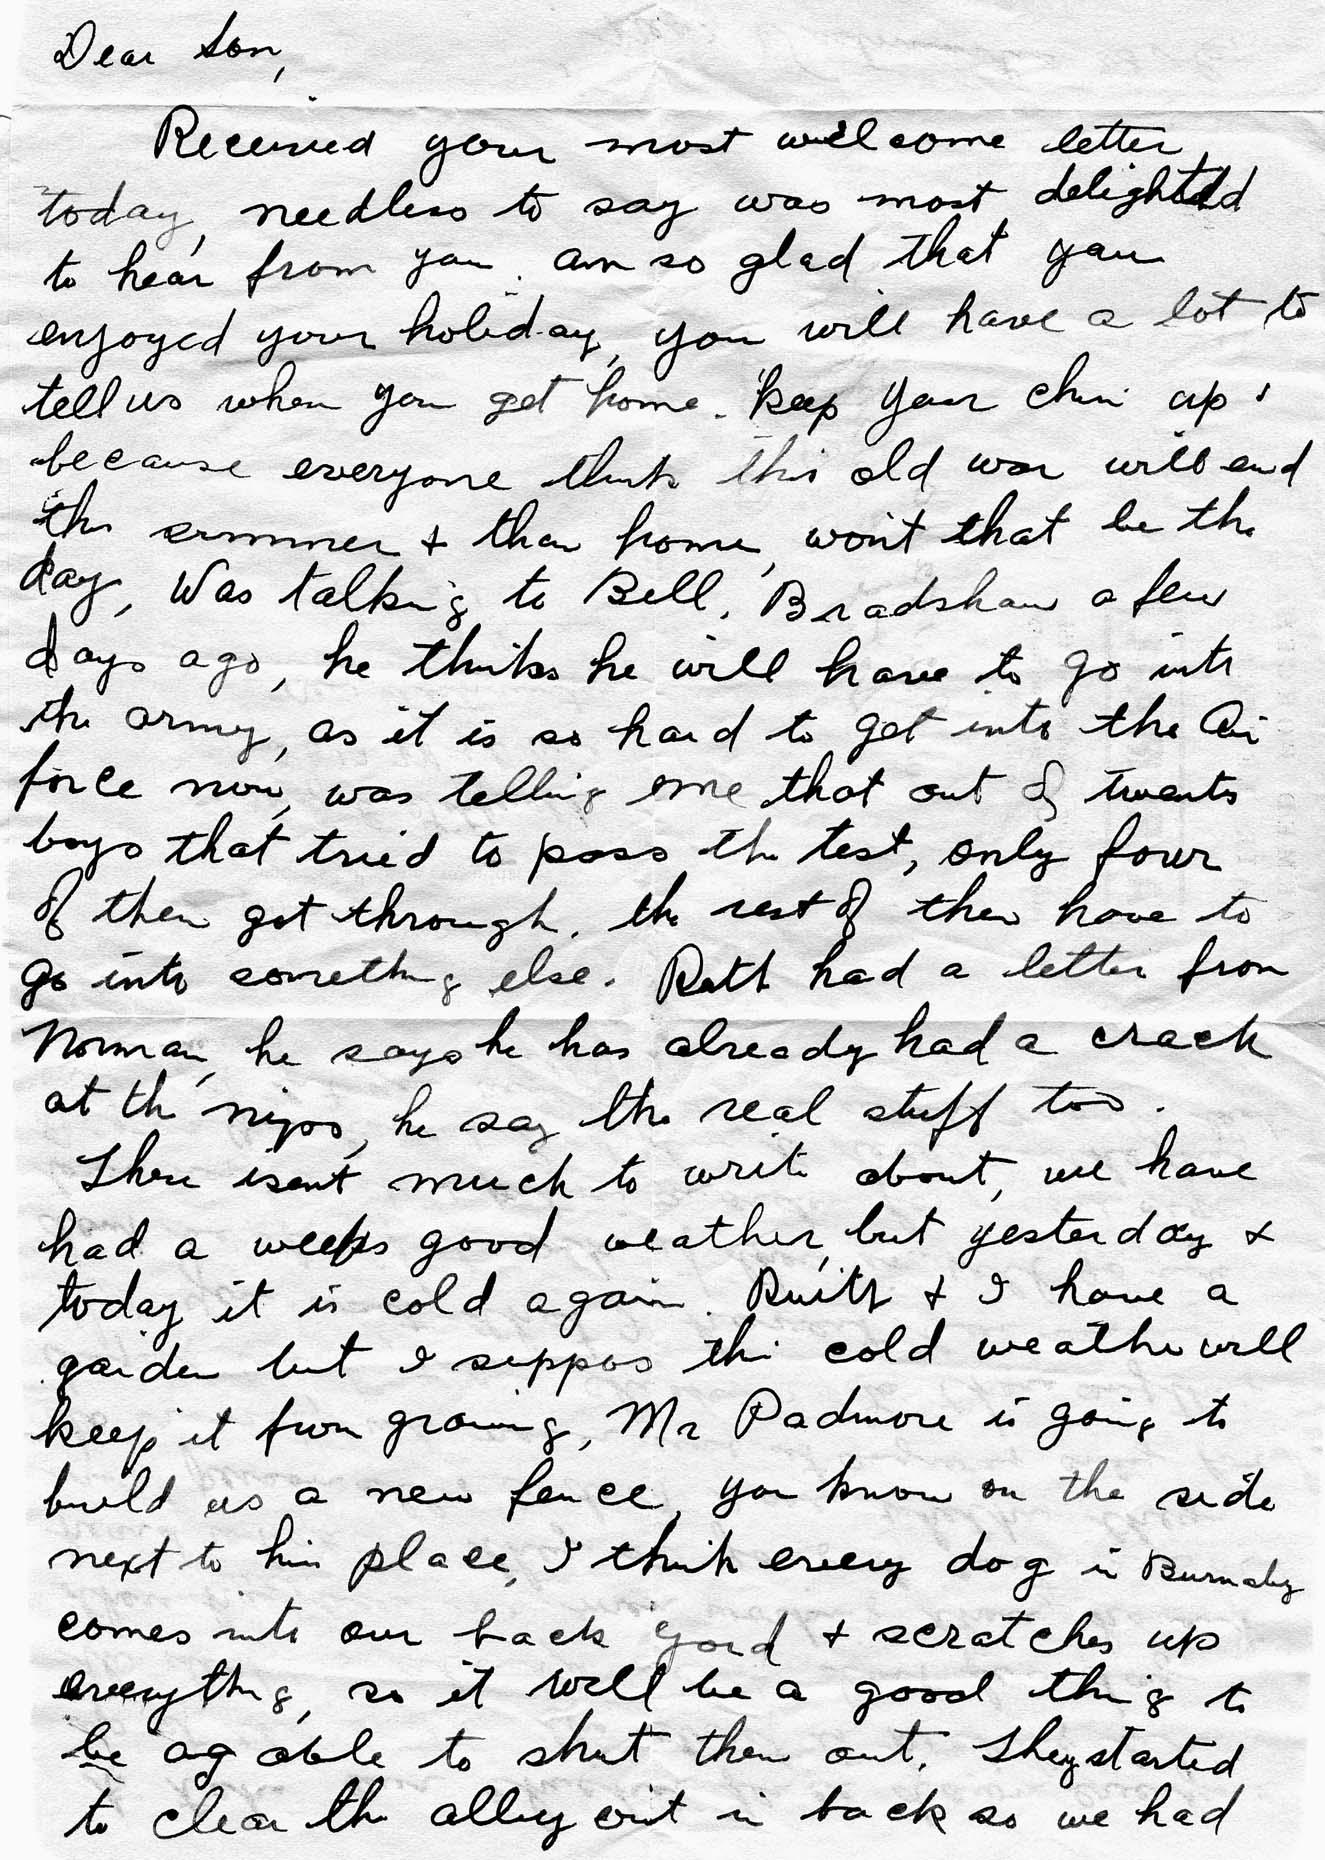 Dear Son,
Received your most welcome letter
today, needless to say was most delighted
to hear from you. am so glad that you
enjoyed your holiday, you will have a lot to
tell us when you get home. "keep your chin up"
because everyone thinks this old war will end
this summer & then home, won't that be the
day, Was talking to Bill. Bradshaw a few
days ago, he thinks he will have to go into
the army, as it is so hard to get into the Air
force now, was telling me that out of twenty
boys that tried to pass the test, only four
of them got through. the rest of them have to
go into something else. Ruth had a letter from
Norman, he says he has already had a crack
at the nips, he say the real stuff too.
There isent much to write about, we have
had a weeks good weather, but yesterday &
today it is cold again. & I have a
garden but I suppos this cold weather will
keep it from growing, Mr Padmore is going to
build us a new fence, you know on the side
next to him place, I think every dog in Burnaby
comes into our back yard & scratches up
everything, so it will be a good thing to
be able to shut them out. They started
to clear the alley out in back so we had